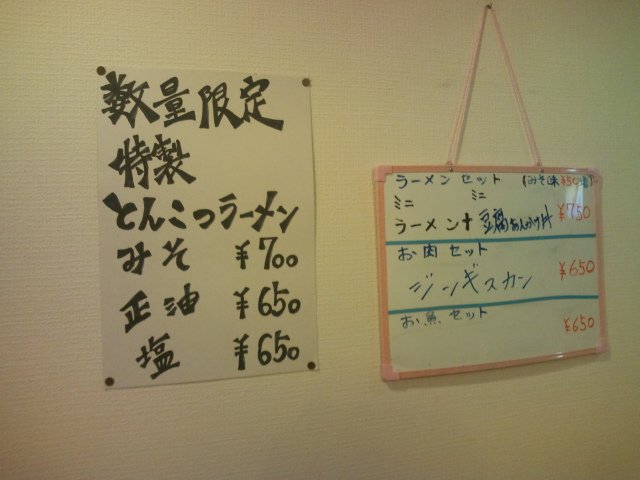 数量限定
特製
とんこつラーメン
みそ ¥700
正油 ¥650
塩 ¥650
ラーメンセット (みそ味¥50増)
ミニ ミニ
ラーメン+豆腐あんかけ丼 ¥750
お肉セット
ジンギスカン ¥650
お魚セット
¥650